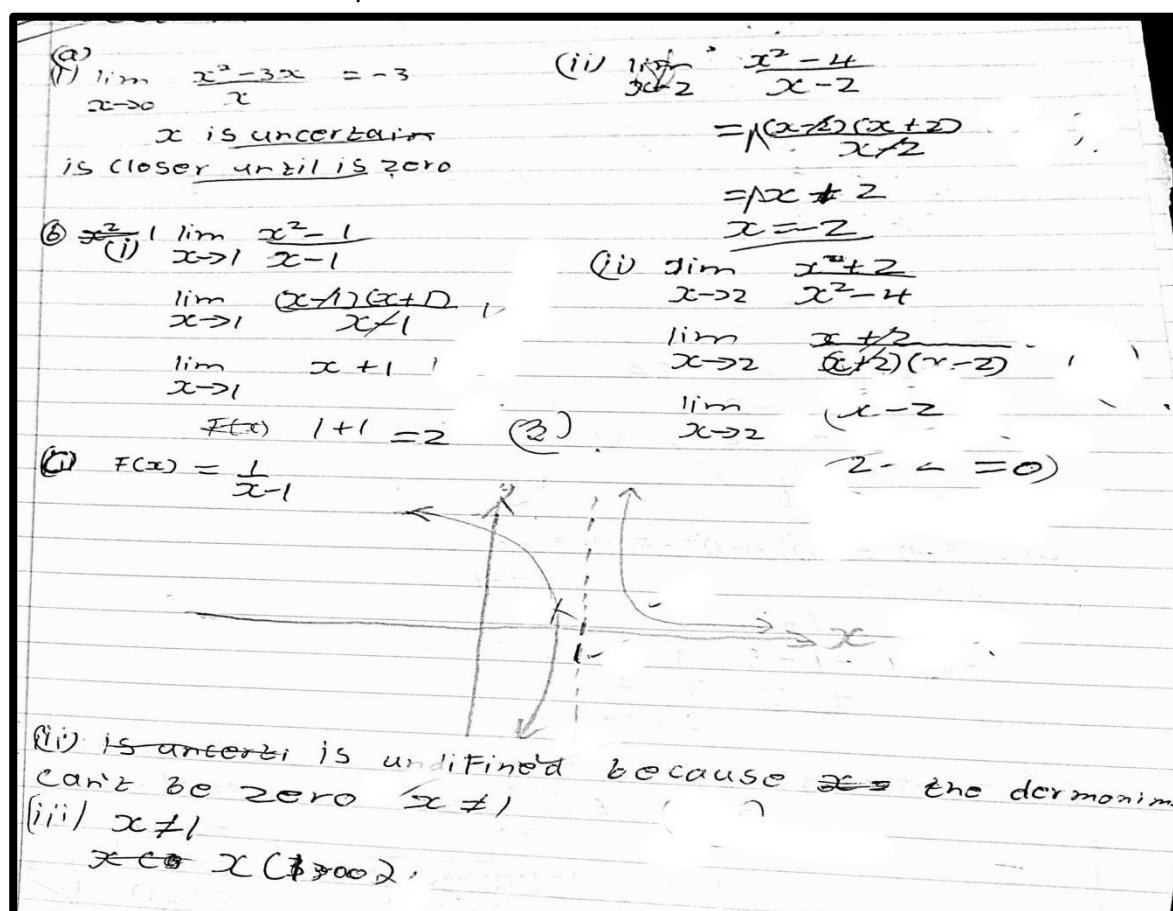 (a)
(i) lim x→0 x²-3x / x = -3
x is uncertain
is closer until is zero
(ii) lim x→2 x²-4 / x-2
= (x-2)(x+2) / x-2
= x + 2
x = -2
(b) x² (i) 1 lim x→1 x²-1 / x-1
lim x→1 (x-1)(x+1) / x-1
lim x→1 x+1
F(x) 1+1 = 2 (2)
(ii) lim x→2 x+2 / x²-4
lim x→2 x+2 / (x+2)(x-2)
lim x→2 (x-2
= 0)
(i) F(x) = 1 / x-1
1
x
(ii) is uncerti is undifined because x = the dermonim
can't be zero x≠1
(iii) x≠1